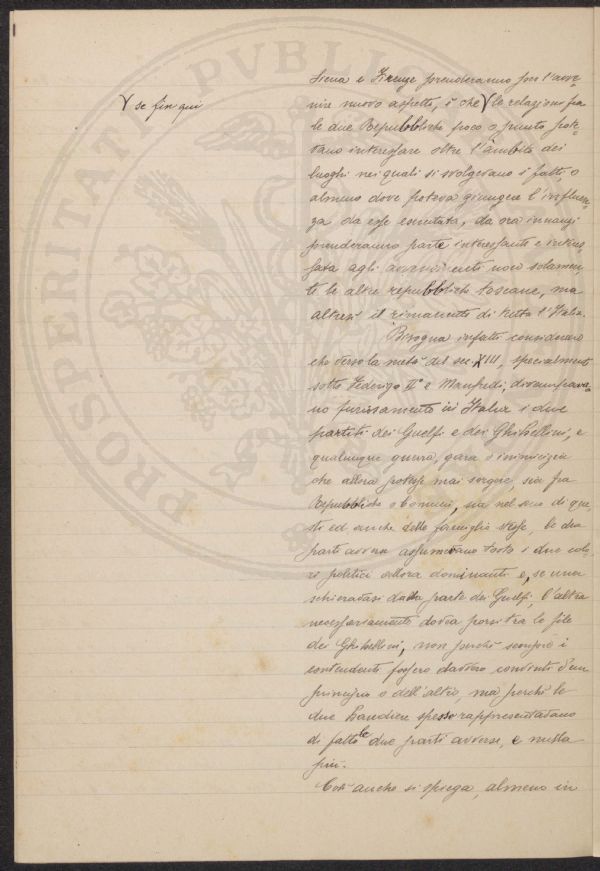 Siena e Firenze prenderanno per l'avve-
nire nuovo aspetto, i che V le relazioni fra
V se fin qui
le due Repubbliche poco o punto pote-
vano interessare oltre l'ambito dei
luoghi nei quali si svolgevano i fatti, o
almeno dove poteva giungere l'influen-
za da esse esercitata, da ora innanzi
prenderanno parte interessante e interes-
sata agli avvenimenti non solamen-
te le altre repubbliche toscane, ma
altresì il rimanente di tutta l'Italia.
Bisogna infatti considerare
che verso la metà del sec. XIII, specialmente
sotto Federigo II° e Manfredi, divampava-
no furiosamente in Italia i due
partiti dei Guelfi e dei Ghibellini, e
qualunque guerra, gara o inimicizia
che allora potesse mai sorgere, sia fra
Repubbliche o Comuni, sia nel seno di que-
sti ed anche delle famiglie stesse, le due
parti avverse assumevano tosto i due colo-
ri politici allora dominanti e, se una
schieravasi dalla parte dei Guelfi, l'altra
necessariamente dovea porsi tra le file
dei Ghibellini, non perchè sempre i
contendenti fossero davvero convinti d'un
principio o dell'altro, ma perchè le
due bandiere spesso rappresentavano
di fatto le due parti avverse, e nulla
più.
Così anche si spiega, almeno in
PVBLIC
PROSPERITAT